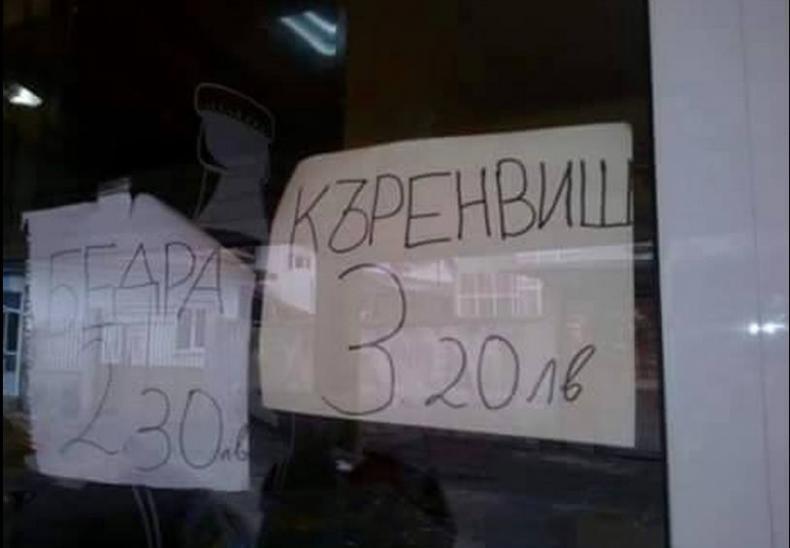 БЕДРА
2.30лв
КЪРЕНВИШ
3.20лв